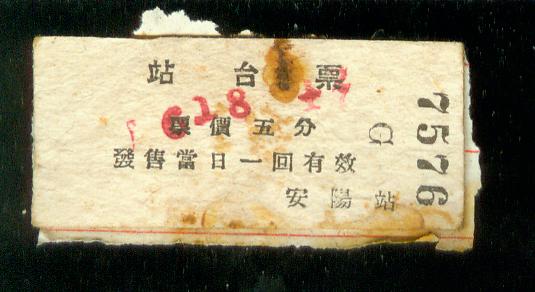 站台票
628
票價五分
發售當日一回有效
安陽站
G
7576